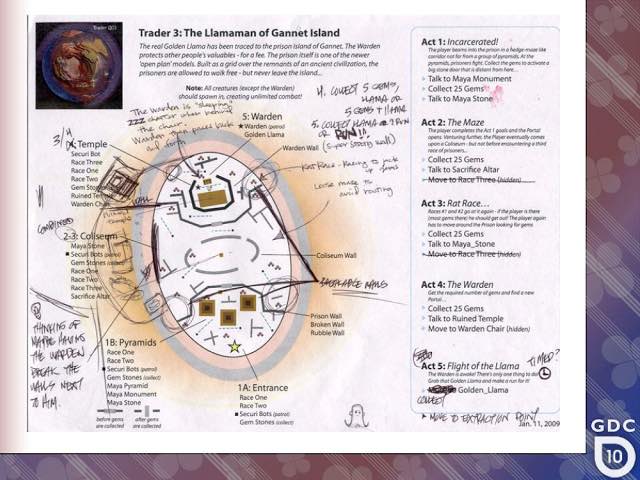 Trader 003
Trader 3: The Llamaman of Gannet Island
The real Golden Llama has been traced to the prison island of Gannet. The Warden
protects other people's valuables - for a fee. The prison itself is one of the newer
'open plan' models. Built as a grid over the remnants of an ancient civilization, the
prisoners are allowed to walk free - but never leave the island...
Note: All creatures (except the Warden)
should spawn in, creating unlimited combat!
THE WARDEN IS "SLEEPING"
ZZZ
the chair.
Warden then paces back
and forth
4. COLLECT 5 GEMS,
LLAMA OR
5 GEMS + LLAMA
5. COLLECT LLAMA & RUN
OR RUN!!.
5: Warden
Warden (patrol)
Golden Llama
Warden Wall
3/4
Temple
Securi Bot
Race Three
Race One
Race Two
Gem Sto
Ruined Temple
Warden Chair
Rat Race - Racing to
gems
Loose maze to
avoid routing
COMBINED
2-3: Coliseum
Maya Stone
Securi Bots (patrol)
Gem Stones (collect)
Race One
Race Two
Race Three
Sacrifice Altar
Coliseum Wall
BREAKABLE WALLS
Prison Wall
Broken Wall
Rubble Wall
THINKING OF
MAYBE HAVING
THE WARDEN
BREAK THE
WALLS NEXT
TO HIM.
1B: Pyramids
Race One
Race Two
Securi Bots (patrol)
Gem Stones (collect)
Maya Pyramid
Maya Monument
Maya Stone
before gems
are collected
after gems
are collected
1A: Entrance
Race One
Race Two
Securi Bots (patrol)
Gem Stones (collect)
Act 1: Incarcerated!
The player beams into the prison in a hedge-maze like
corridor not far from a group of pyramids. At the
pyramids, prisoners fight. Collect the gems to activate a
big stone door that is distant from here...
Talk to Maya Monument
Collect 25 Gems
Talk to Maya Stone
Act 2: The Maze
The player completes the Act 1 goals and the Portal
opens. Venturing further, the Player eventually comes
upon a Coliseum - but not before encountering a third
race of prisoners...
Collect 25 Gems
Talk to Sacrifice Altar
Move to Race Three (hidden)
Act 3: Rat Race...
Races #1 and #2 go at it again - if the player is there
(most gems there) he should get out! The player again
has to move around the Prison looking for gems
Collect 25 Gems
Talk to Maya_Stone
Move to Race Three (hidden)
Act 4: The Warden
Get the required number of gems and find a new
Portal...
Collect 25 Gems
Talk to Ruined Temple
Move to Warden Chair (hidden)
Act 5: Flight of the Llama
TIMED?
The Warden is awake! There's only one thing to do.
Grab that Golden Llama and make a run for it!
Golden_Llama
COLLECT
MOVE TO EXTRACTION POINT
Jan. 11, 2009
GDC
10